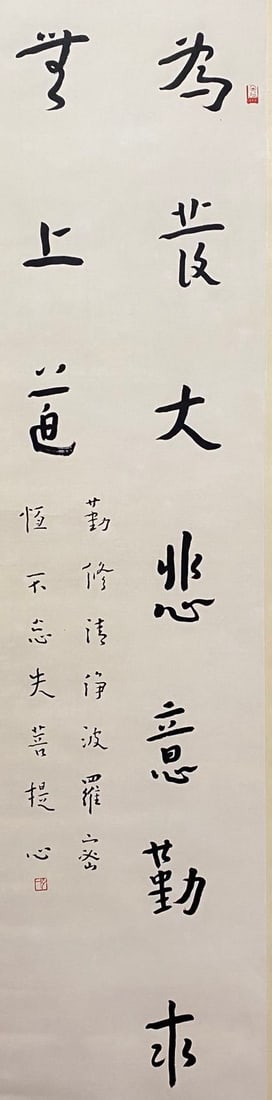 為發大悲意勤求
無上道
勤修清淨波羅密
恆不忘失菩提心